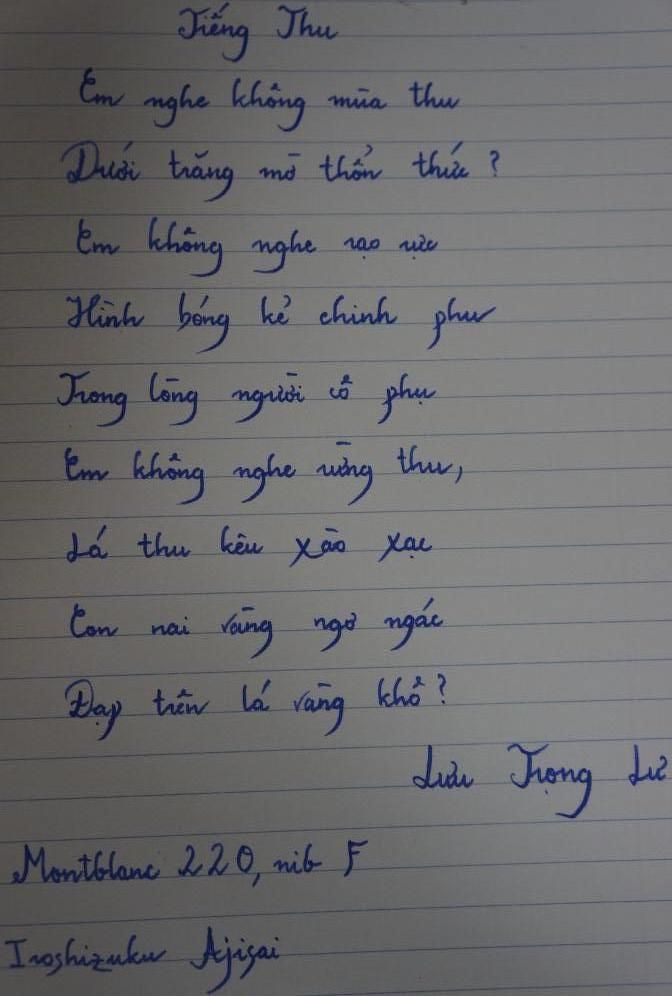 Tiếng Thu
Em nghe không mùa thu
Dưới trăng mờ thổn thức?
Em không nghe rạo rực
Hình bóng kẻ chinh phu
Trong lòng người cô phụ
Em không nghe rừng thu,
Lá thu kêu xào xạc
Con nai vàng ngơ ngác
Đạp trên lá vàng khô?
Lưu Trọng Lư
Montblanc 220, nib F
Iroshizuku Ajisai